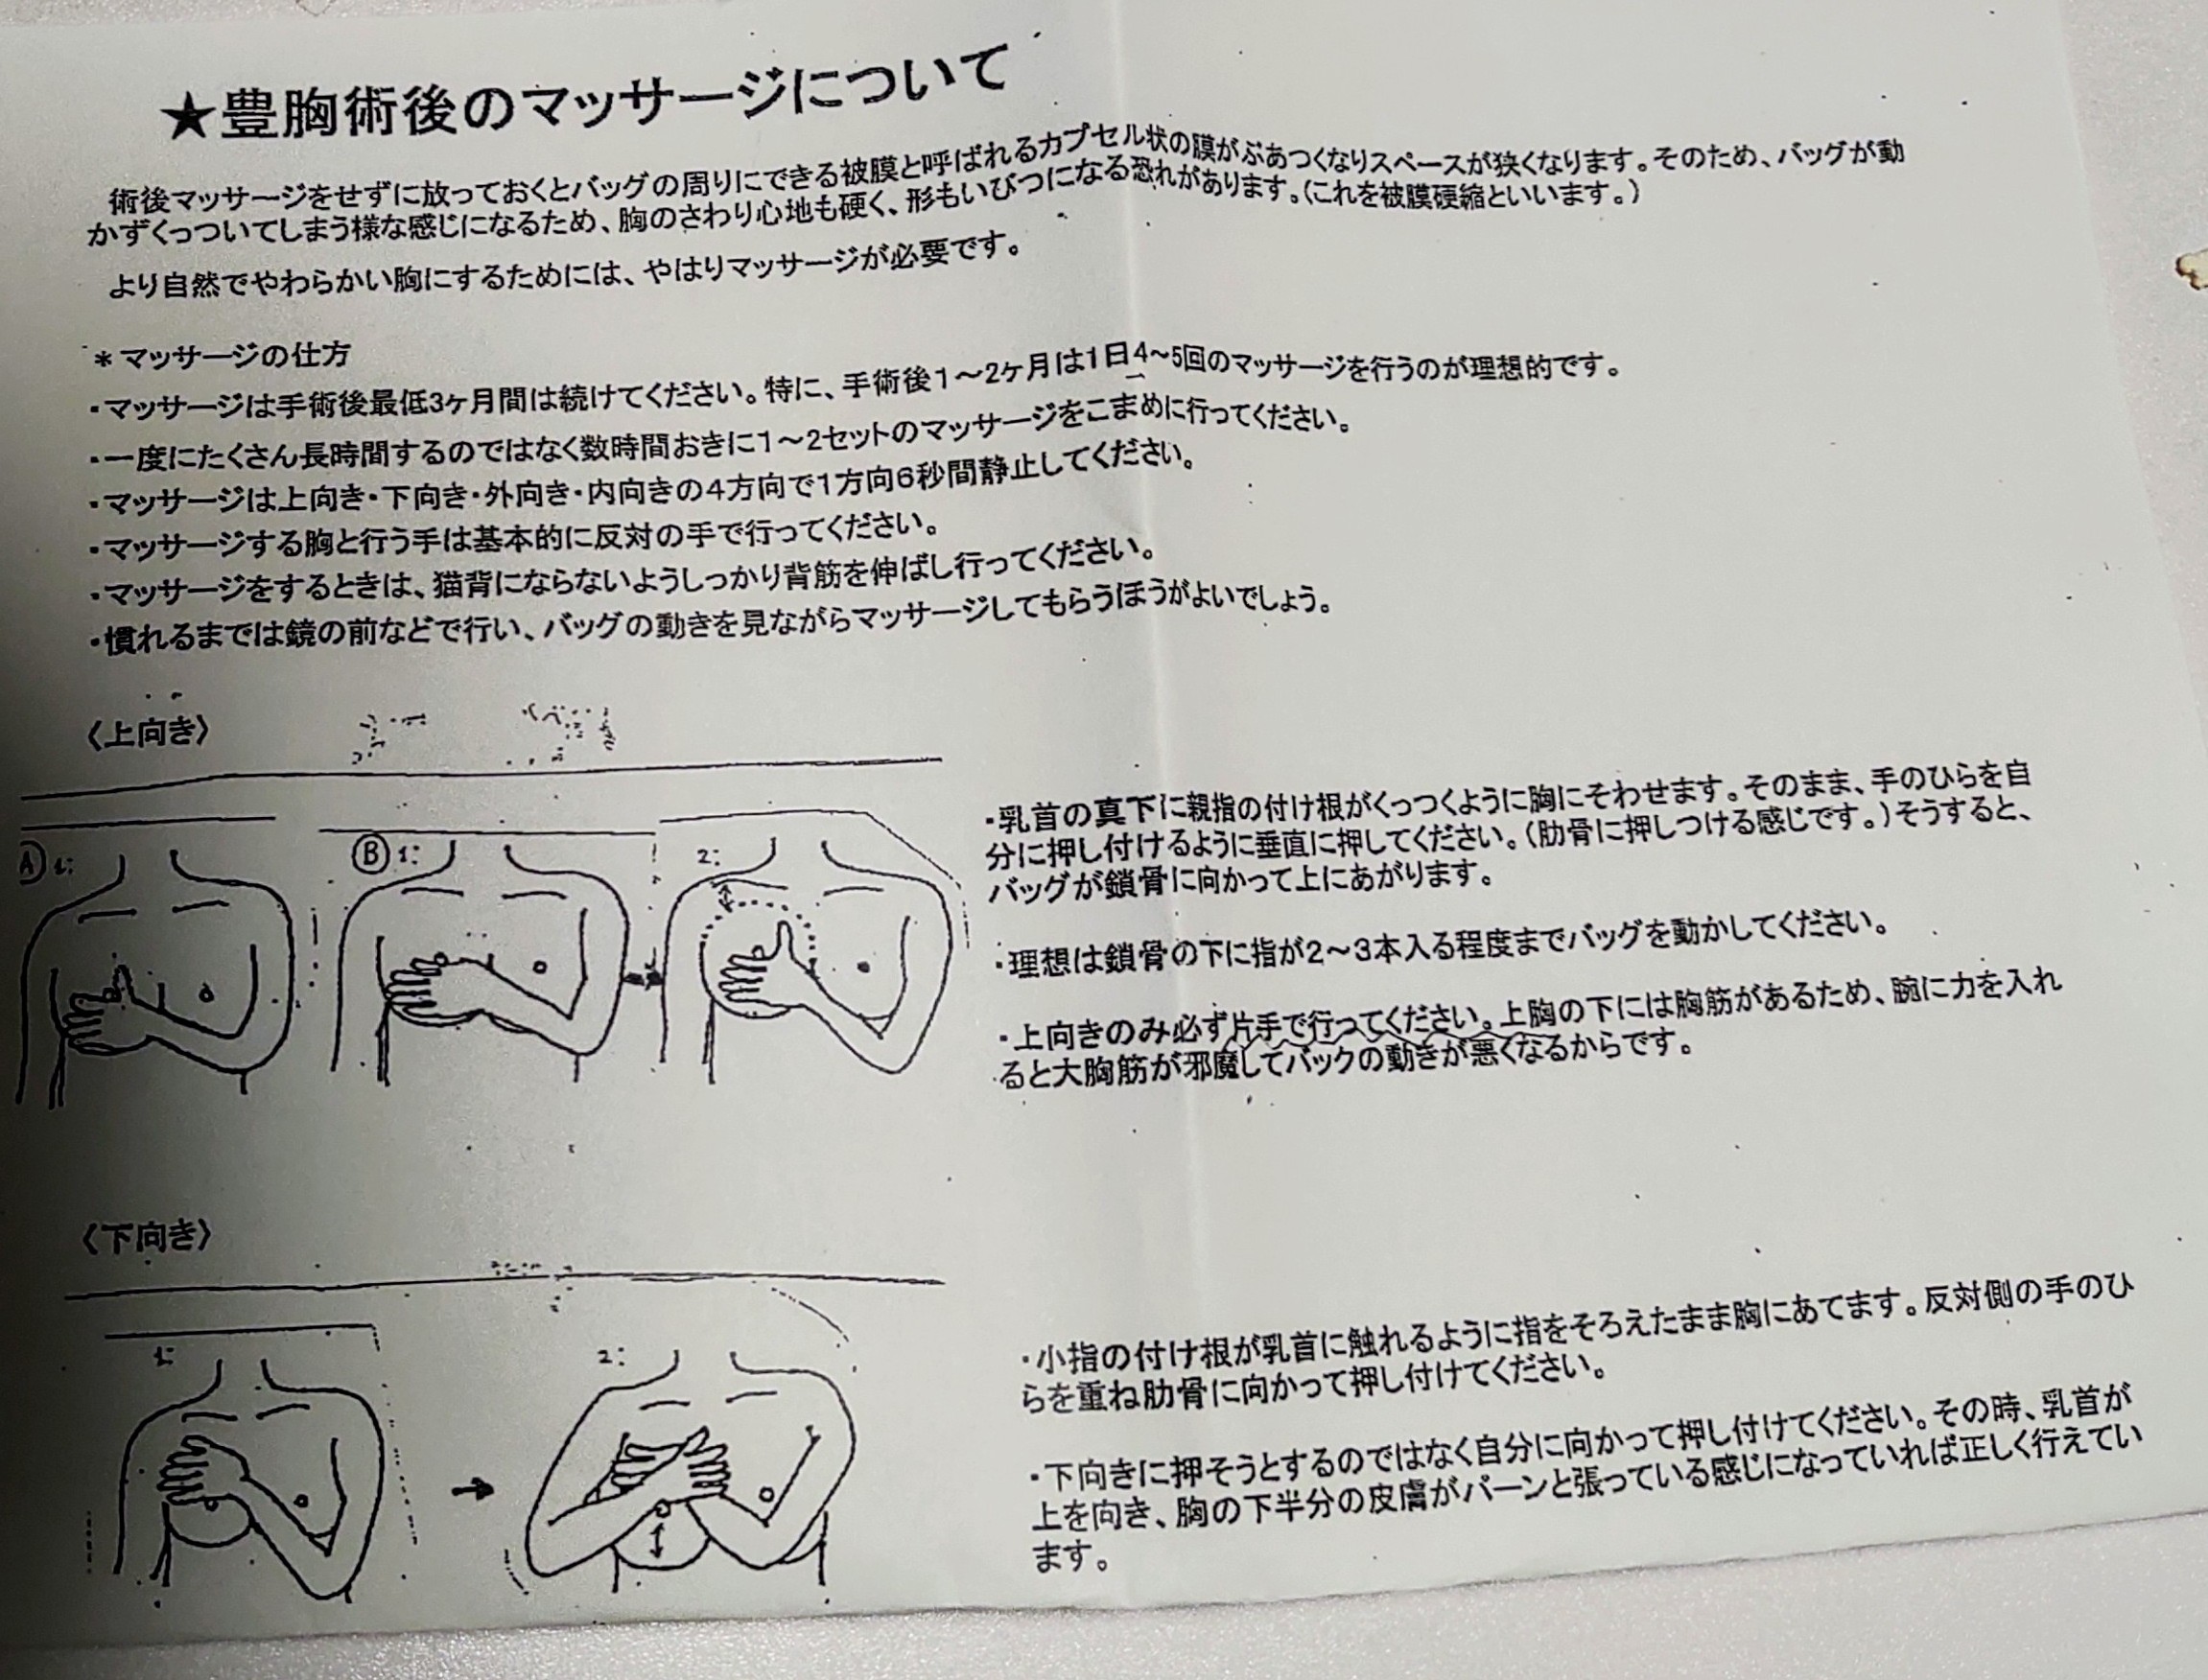 ★豊胸術後のマッサージについて
術後マッサージをせずに放っておくとバッグの周りにできる被膜と呼ばれるカプセル状の膜がぶあつくなりスペースが狭くなります。そのため、バッグが動
かずくっついてしまう様な感じになるため、胸のさわり心地も硬く、形もいびつになる恐れがあります。(これを被膜硬縮といいます。)
より自然でやわらかい胸にするためには、やはりマッサージが必要です。
＊マッサージの仕方
・マッサージは手術後最低3ヶ月間は続けてください。特に、手術後1～2ヶ月は1日4～5回のマッサージを行うのが理想的です。
・一度にたくさん長時間するのではなく数時間おきに1～2セットのマッサージをこまめに行ってください。
・マッサージは上向き・下向き・外向き・内向きの4方向で1方向6秒間静止してください。
・マッサージする胸と行う手は基本的に反対の手で行ってください。
・マッサージをするときは、猫背にならないようしっかり背筋を伸ばし行ってください。
・慣れるまでは鏡の前などで行い、バッグの動きを見ながらマッサージしてもらうほうがよいでしょう。
〈上向き〉
Ⓐ 1:
Ⓑ 1:
2:
・乳首の真下に親指の付け根がくっつくように胸にそわせます。そのまま、手のひらを自
分に押し付けるように垂直に押してください。(肋骨に押しつける感じです。)そうすると、
バッグが鎖骨に向かって上にあがります。
・理想は鎖骨の下に指が2～3本入る程度までバッグを動かしてください。
・上向きのみ必ず片手で行ってください。上胸の下には胸筋があるため、腕に力を入れ
ると大胸筋が邪魔してバックの動きが悪くなるからです。
〈下向き〉
1:
2:
・小指の付け根が乳首に触れるように指をそろえたまま胸にあてます。反対側の手のひ
らを重ね肋骨に向かって押し付けてください。
・下向きに押そうとするのではなく自分に向かって押し付けてください。その時、乳首が
上を向き、胸の下半分の皮膚がパーンと張っている感じになっていれば正しく行えてい
ます。